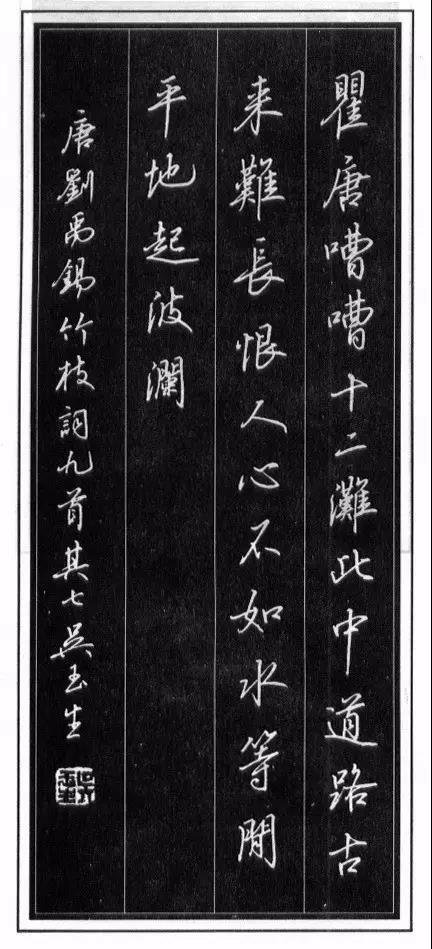 瞿唐嘈嘈十二灘此中道路古
来難長恨人心不如水等閒
平地起波瀾
唐劉禹錫竹枝詞九首其七吳玉生